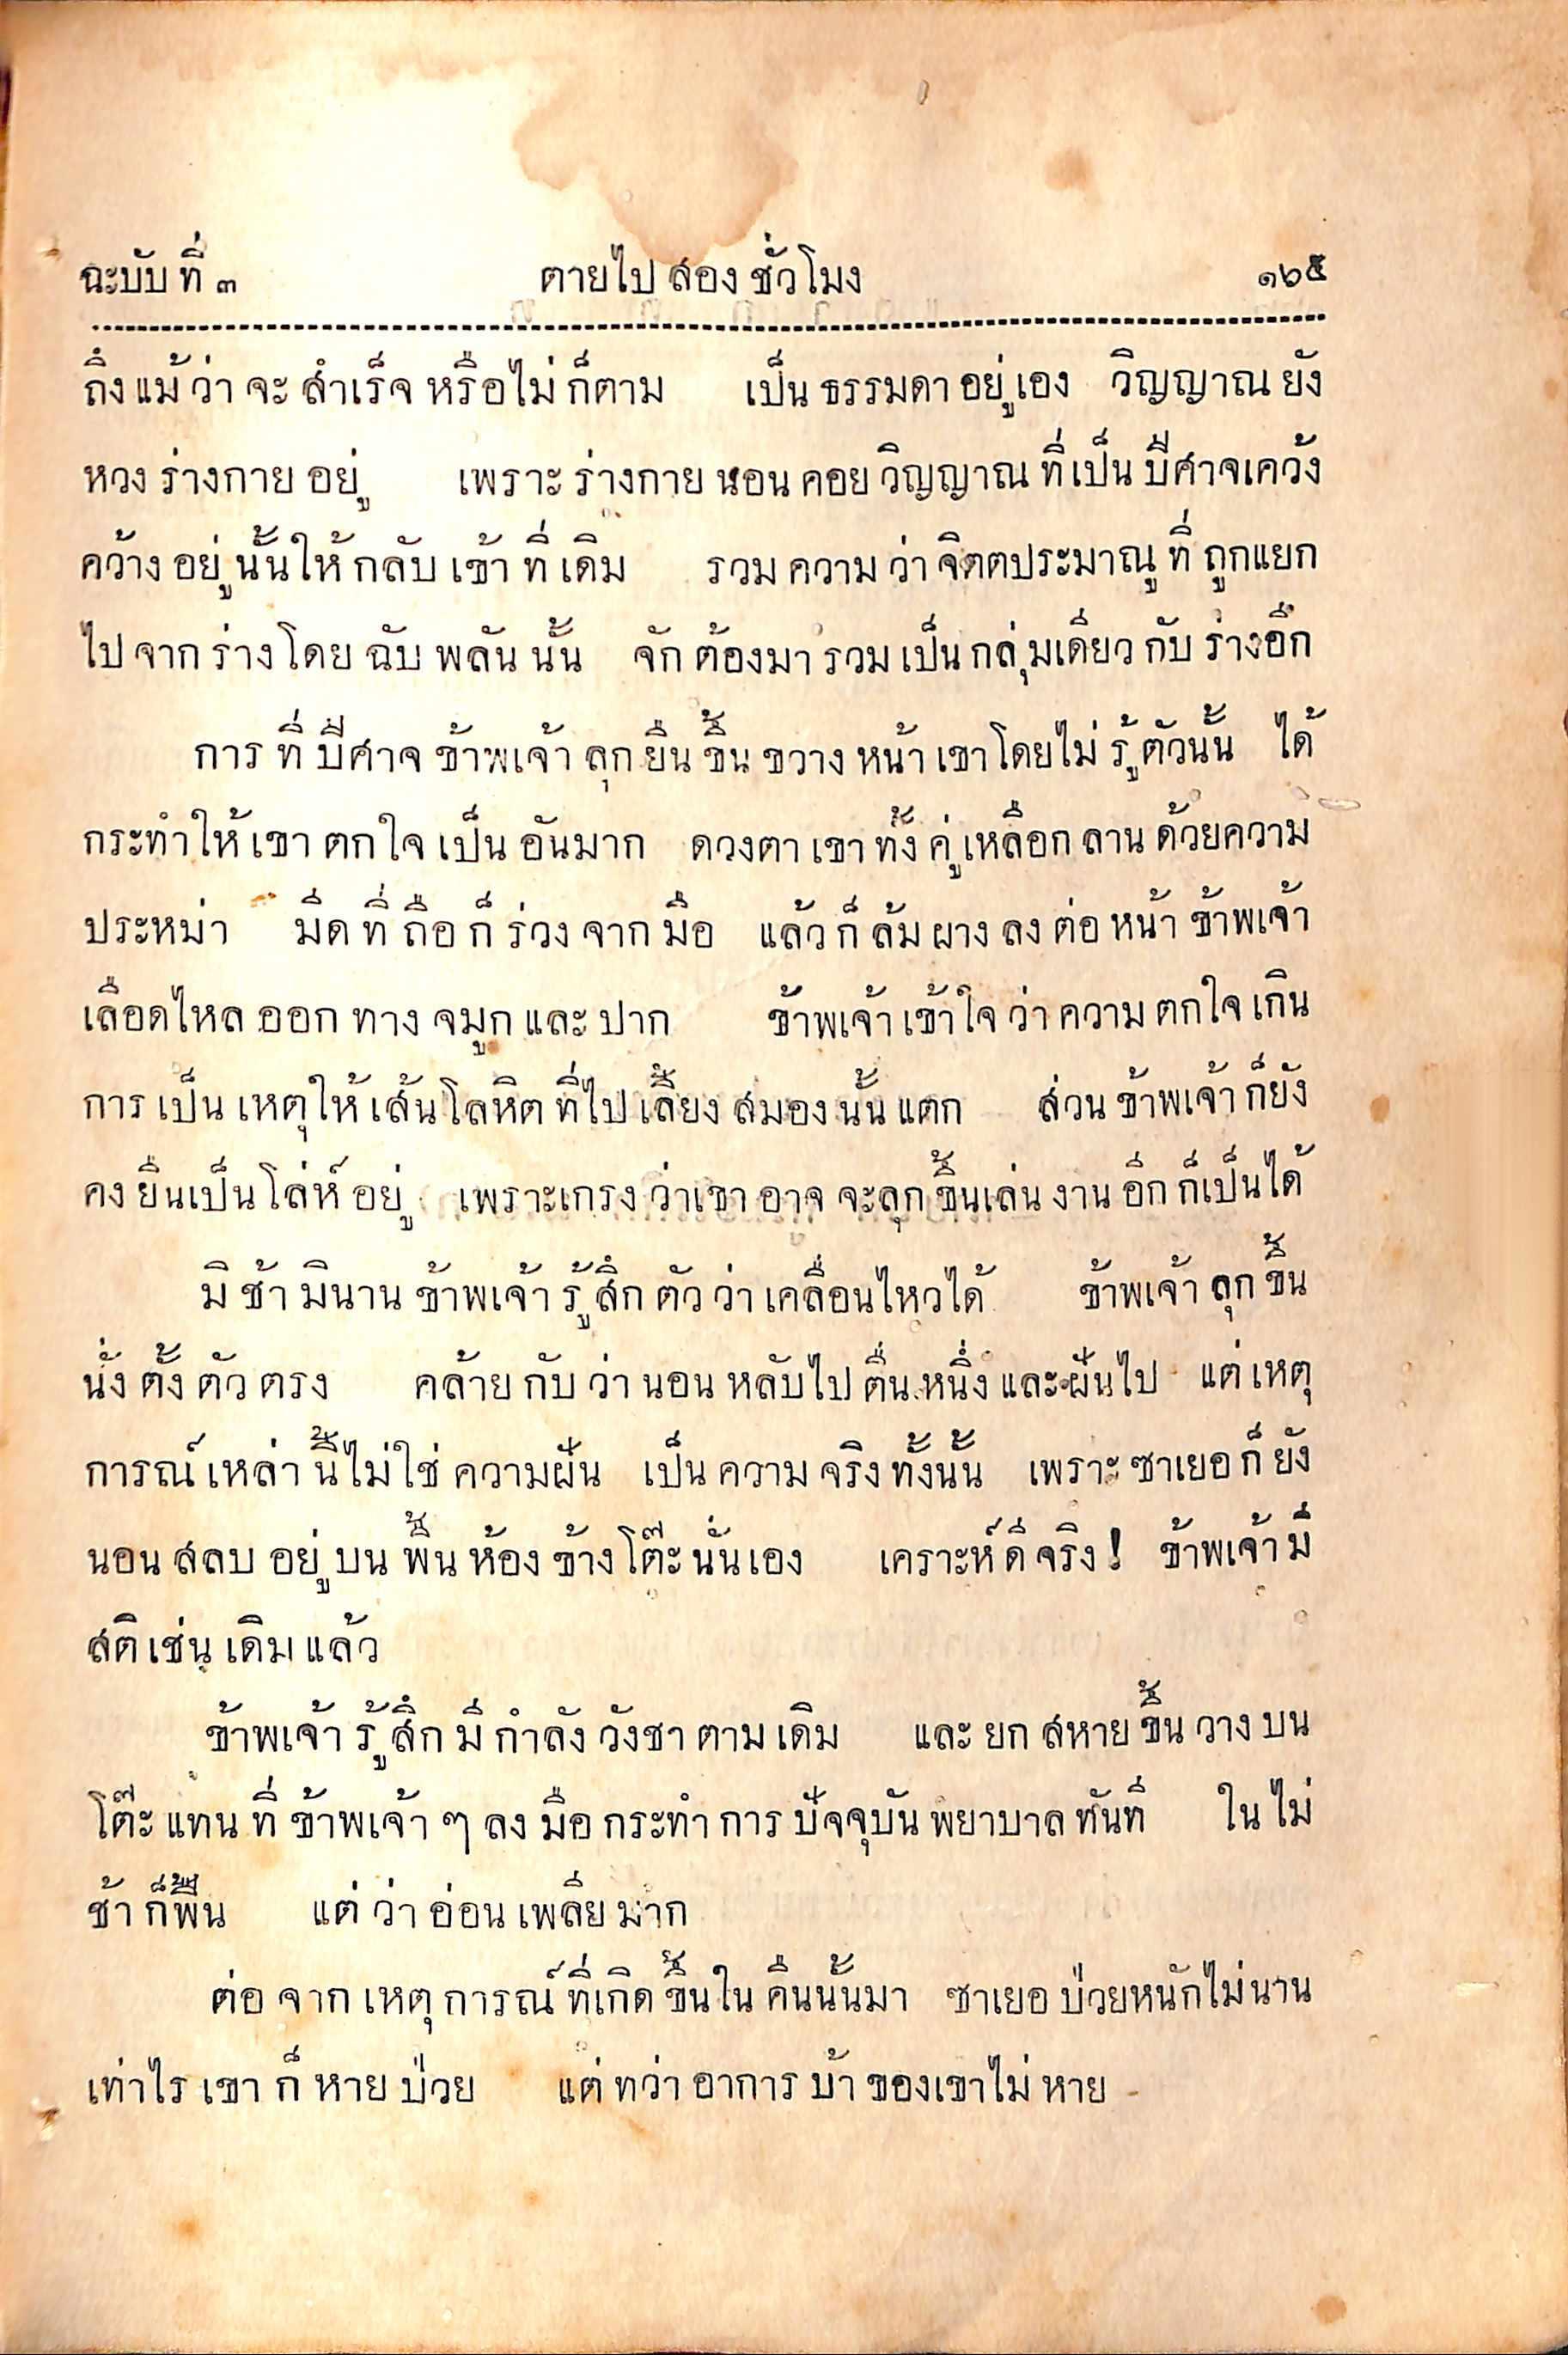 ฉะบับที่ ๓ ตายไปสองชั่วโมง ๑๖๕
ถึงแม้ว่าจะสำเร็จหรือไม่ก็ตาม เป็นธรรมดาอยู่เอง วิญญาณยัง
หวงร่างกายอยู่ เพราะร่างกายนอนคอยวิญญาณที่เป็นปีศาจเคว้ง
คว้างอยู่นั้นให้กลับเข้าที่เดิม รวมความว่าจิตตประมาณูที่ถูกแยก
ไปจากร่างโดยฉับพลันนั้น จักต้องมารวมเป็นกลุ่มเดียวกับร่างอีก
การที่ปีศาจข้าพเจ้าลุกยืนขึ้นขวางหน้าเขาโดยไม่รู้ตัวนั้น ได้
กระทำให้เขาตกใจเป็นอันมาก ดวงตาเขาทั้งคู่เหลือกลานด้วยความ
ประหม่า มีดที่ถือก็ร่วงจากมือ แล้วก็ล้มผางลงต่อหน้าข้าพเจ้า
เลือดไหลออกทางจมูกและปาก ข้าพเจ้าเข้าใจว่าความตกใจเกิน
การเป็นเหตุให้เส้นโลหิตที่ไปเลี้ยงสมองนั้นแตก ส่วนข้าพเจ้าก็ยัง
คงยืนเป็นโล่ห์อยู่ เพราะเกรงว่าเขาอาจจะลุกขึ้นเล่นงานอีกก็เป็นได้
มิช้ามินานข้าพเจ้ารู้สึกตัวว่าเคลื่อนไหวได้ ข้าพเจ้าลุกขึ้น
นั่งตั้งตัวตรง คล้ายกับว่านอนหลับไปตื่นหนึ่งและฝันไป แต่เหตุ
การณ์เหล่านี้ไม่ใช่ความฝัน เป็นความจริงทั้งนั้น เพราะซาเยอก็ยัง
นอนสลบอยู่บนพื้นห้องข้างโต๊ะนั่นเอง เคราะห์ดีจริง! ข้าพเจ้ามี
สติเช่นเดิมแล้ว
ข้าพเจ้ารู้สึกมีกำลังวังชาตามเดิม และยกสหายขึ้นวางบน
โต๊ะแทนที่ข้าพเจ้า ๆ ลงมือกระทำการปัจจุบันพยาบาลทันที ในไม่
ช้าก็ฟื้น แต่ว่าอ่อนเพลียมาก
ต่อจากเหตุการณ์ที่เกิดขึ้นในคืนนั้นมา ซาเยอป่วยหนักไม่นาน
เท่าไรเขาก็หายป่วย แต่ทว่าอาการบ้าของเขาไม่หาย